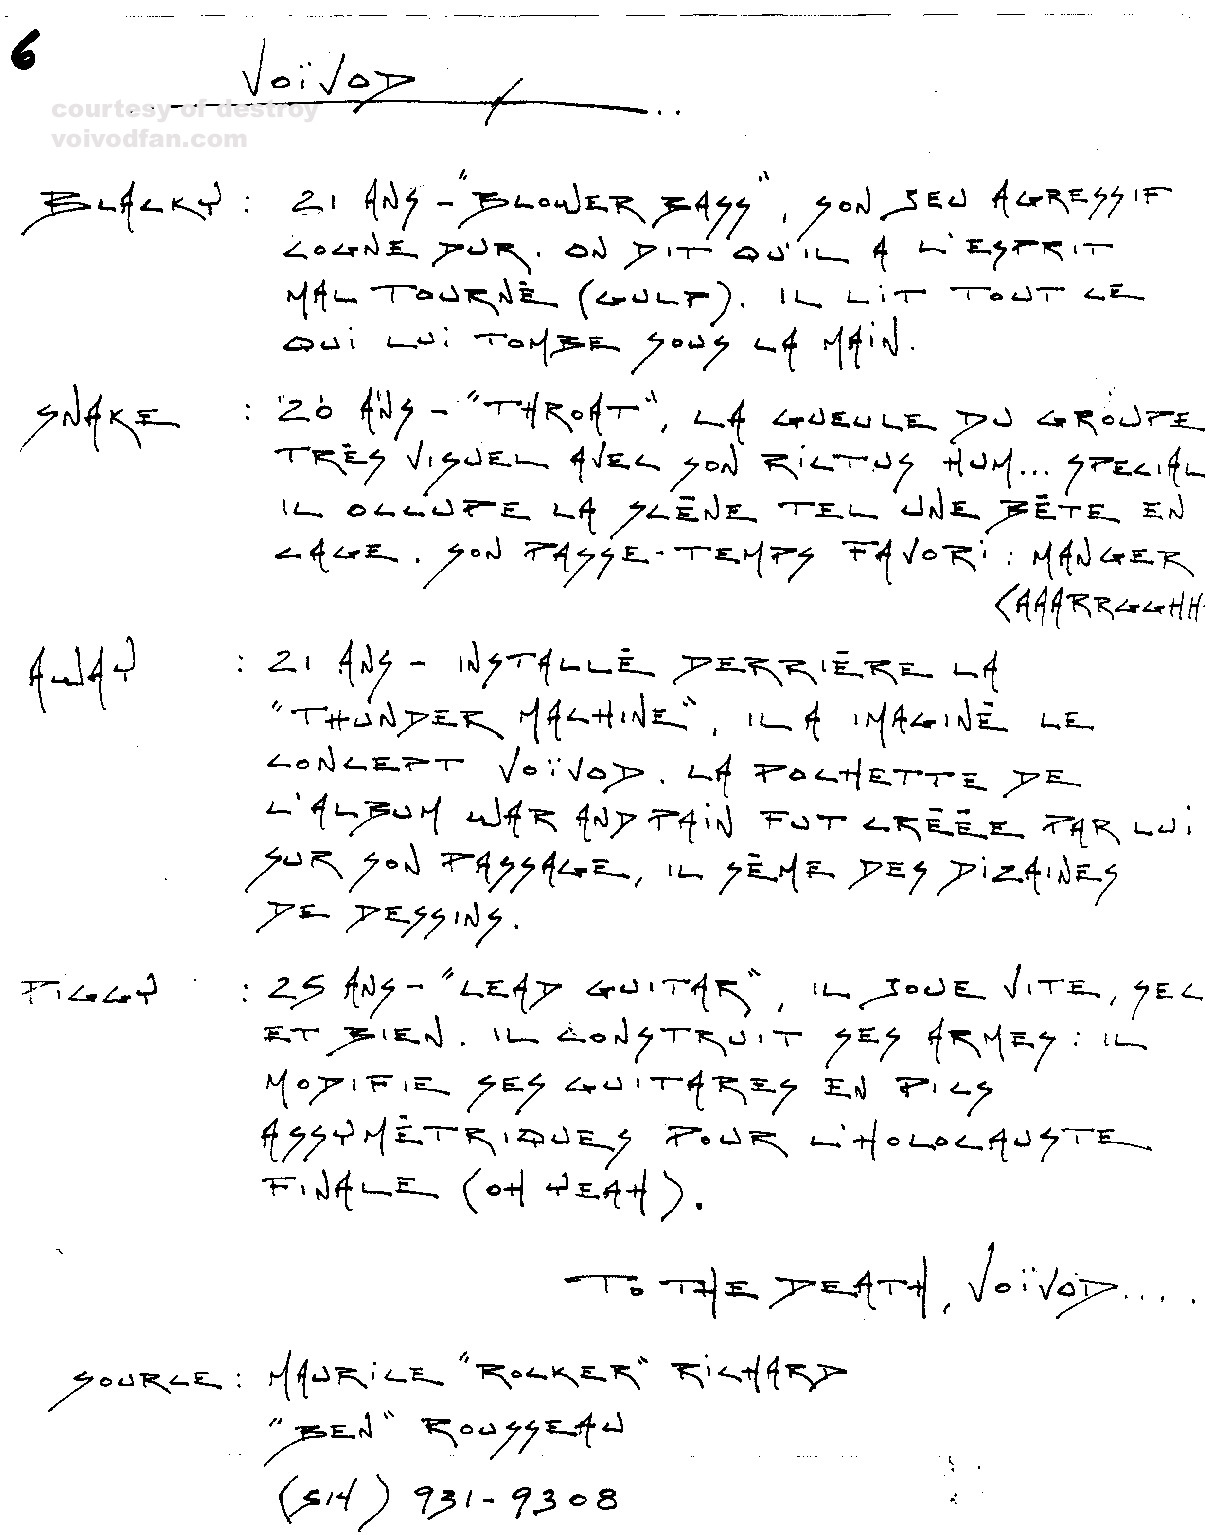 6
VOÏVOD
courtesy of destroy
voivodfan.com
BLACKY : 21 ANS - "BLOWER BASS", SON JEU AGRESSIF
COGNE DUR. ON DIT QU'IL A L'ESPRIT
MAL TOURNÉ (GULP). IL LIT TOUT CE
QUI LUI TOMBE SOUS LA MAIN.
SNAKE : 20 ANS - "THROAT", LA GUEULE DU GROUPE
TRÈS VISUEL AVEC SON RICTUS HUM... SPECIAL
IL OCCUPE LA SCÈNE TEL UNE BÊTE EN
CAGE. SON PASSE-TEMPS FAVORI : MANGER
(AAARRGGHH
AWAY : 21 ANS - INSTALLÉ DERRIÈRE LA
"THUNDER MACHINE", IL A IMAGINÉ LE
CONCEPT VOÏVOD. LA POCHETTE DE
L'ALBUM WAR AND PAIN FUT CRÉÉE PAR LUI
SUR SON PASSAGE, IL SÈME DES DIZAINES
DE DESSINS.
PIGGY : 25 ANS - "LEAD GUITAR", IL JOUE VITE, SEC
ET BIEN. IL CONSTRUIT SES ARMES : IL
MODIFIE SES GUITARES EN PICS
ASSYMÉTRIQUES POUR L'HOLOCAUSTE
FINALE (OH YEAH).
TO THE DEATH, VOÏVOD....
SOURCE : MAURICE "ROCKER" RICHARD
"BEN" ROUSSEAU
(514) 931-9308